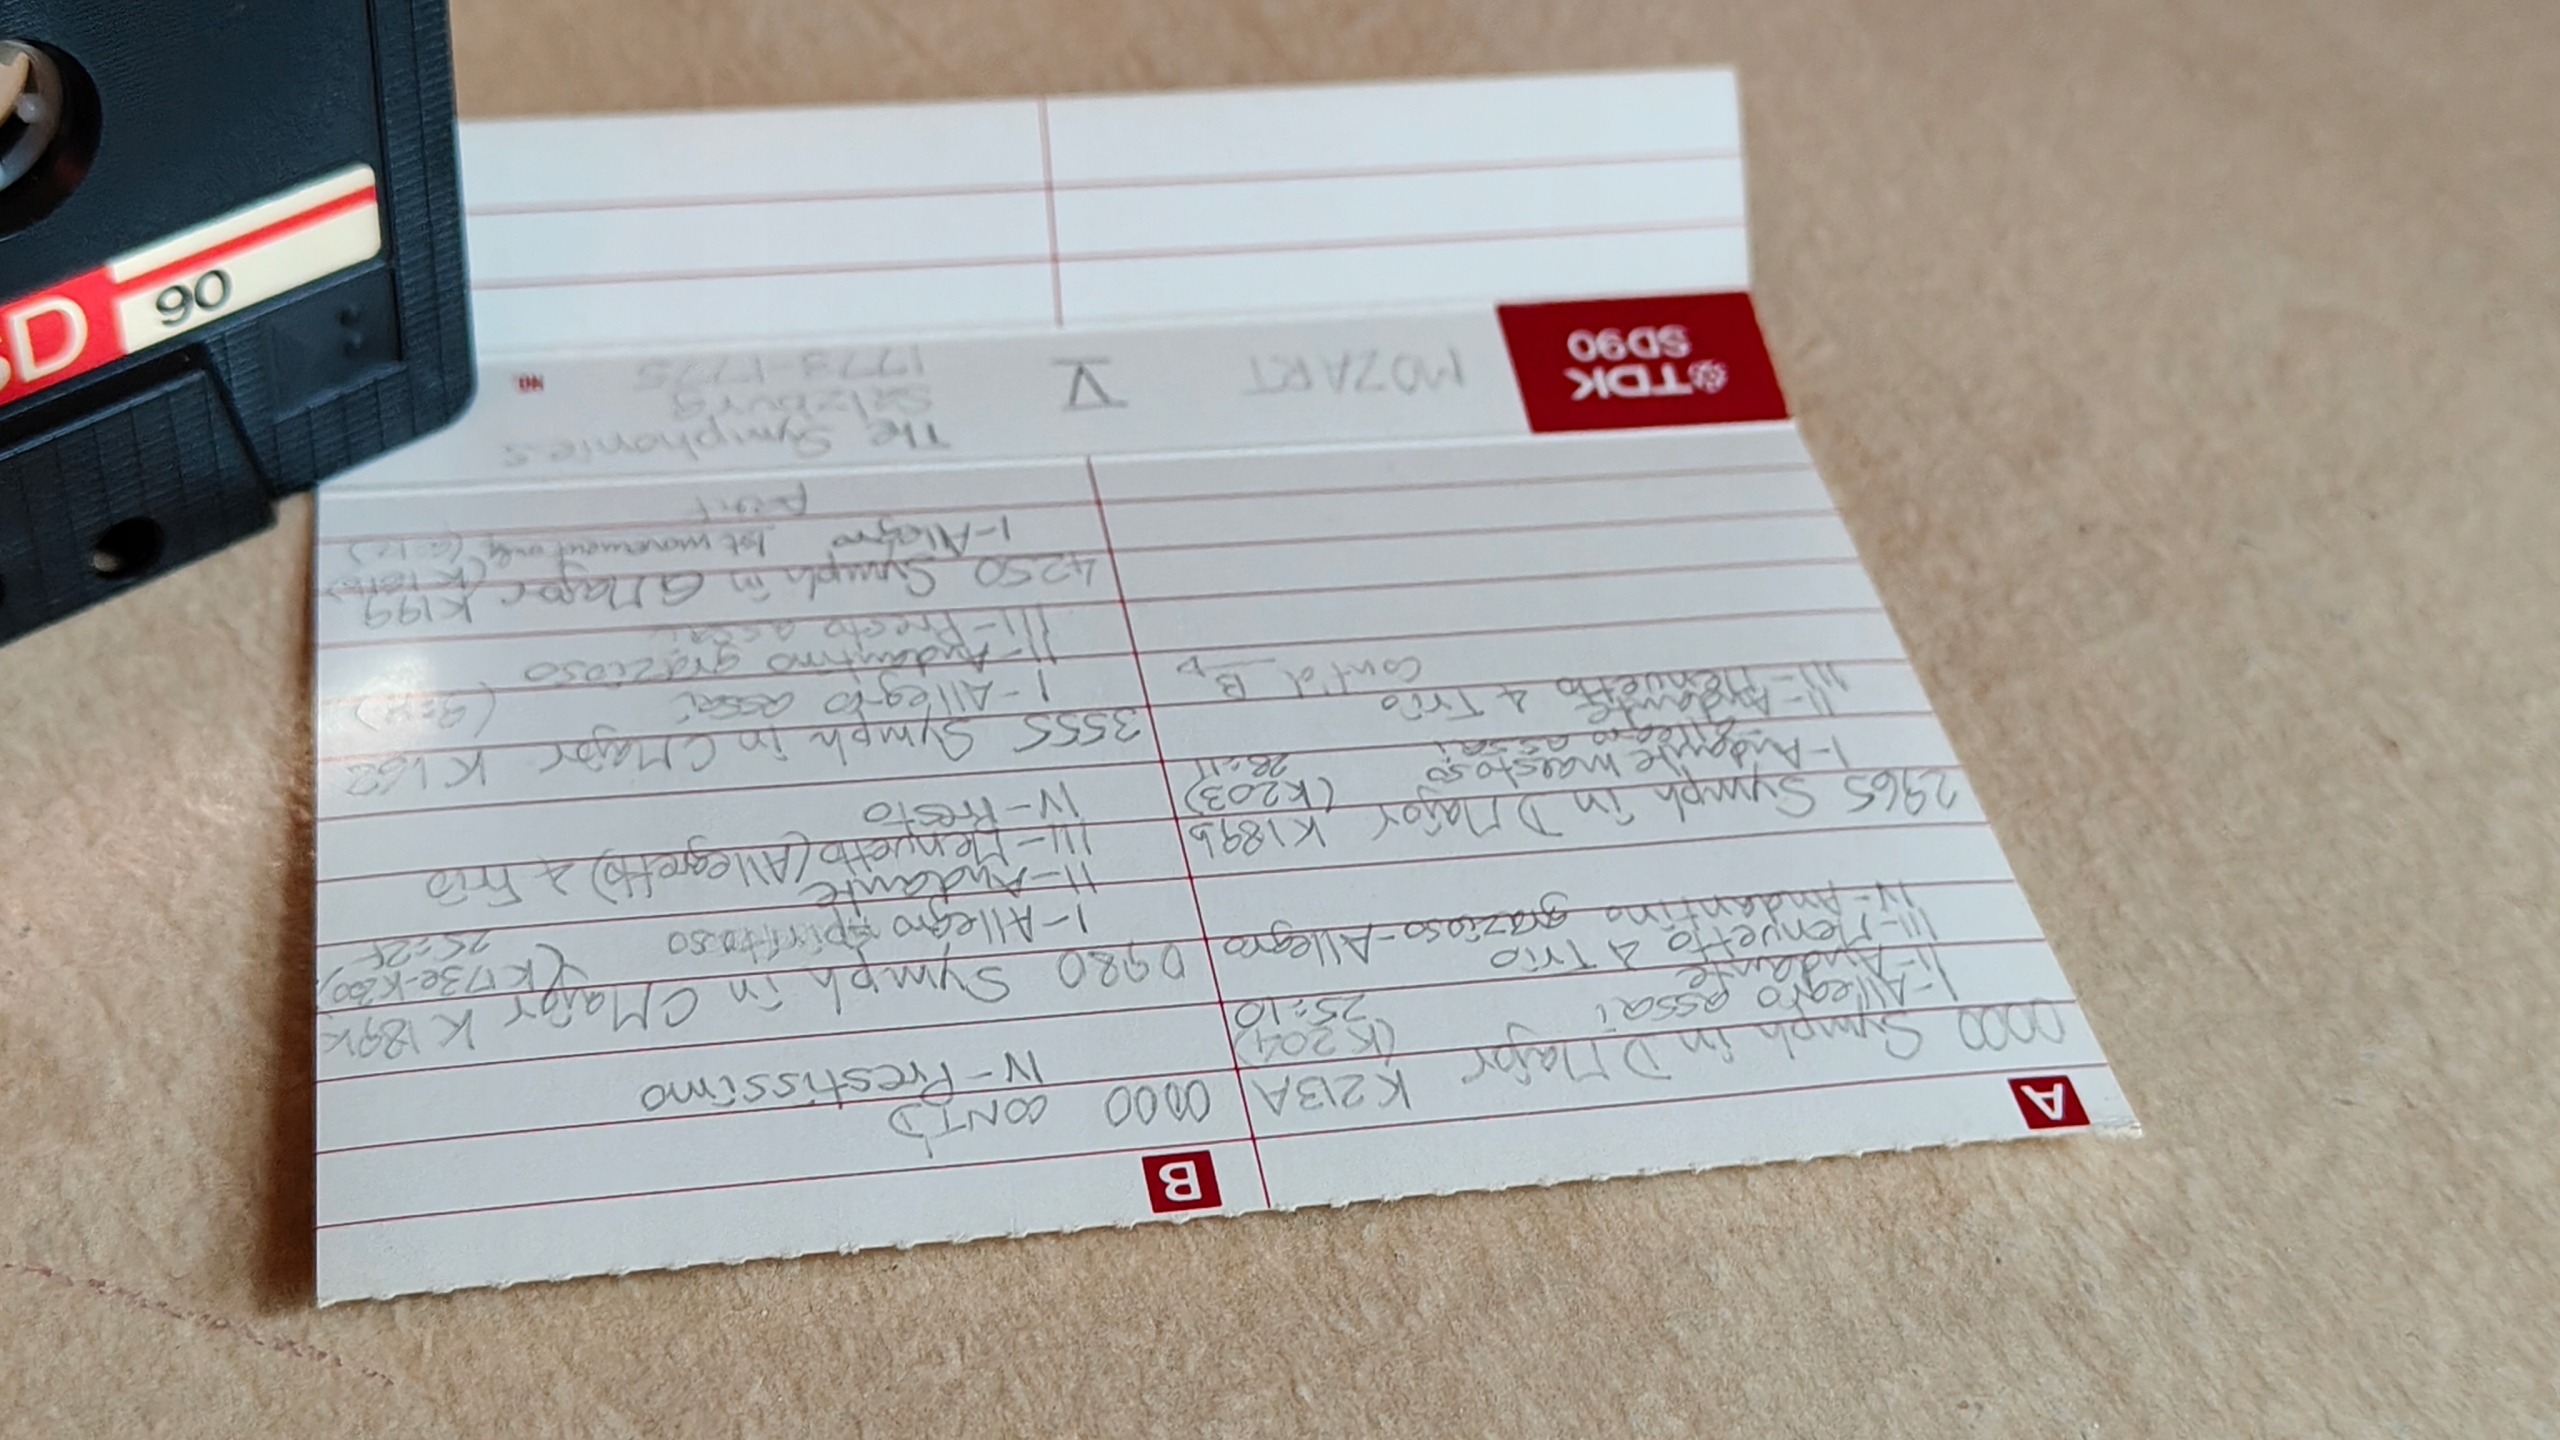 SD
90
TDK
SD90
MOZART
V
The Symphonies
Salzburg
1773-1775
NO.
A
0000 Symph in D Major K213A
(K204)
I-Allegro assai 25:10
II-Andante
III-Menuetto & Trio
IV-Andantino grazioso-Allegro
2965 Symph in D Major K189b
(K203)
I-Andante maestoso 28:11
allegro assai
II-Andante
III-Menuetto & Trio
Cont'd B
B
0000 CONT'D
IV-Prestissimo
0980 Symph in C Major K189k
(K173e-K200)
I-Allegro spiritoso
II-Andante
III-Menuetto (Allegretto) & Trio
IV-Presto
3555 Symph in C Major K162
I-Allegro assai
II-Andantino grazioso
III-Presto assai
4250 Symph in G Major K199
I-Allegro 1st movement only